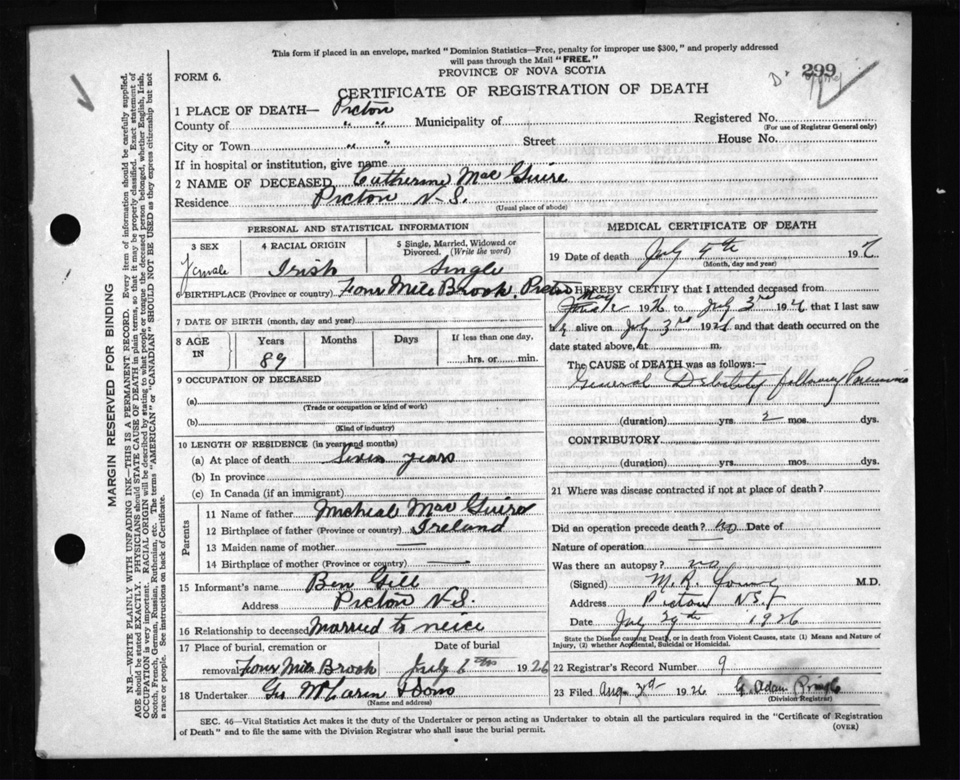 This form if placed in an envelope, marked "Dominion Statistics—Free, penalty for improper use $300," and properly addressed
will pass through the Mail "FREE."
FORM 6.
PROVINCE OF NOVA SCOTIA
299
CERTIFICATE OF REGISTRATION OF DEATH
1 PLACE OF DEATH— Pictou
County of " " Municipality of Registered No.
(For use of Registrar General only)
City or Town " " Street House No.
If in hospital or institution, give name
2 NAME OF DECEASED Catherine Mac Guire
Residence Pictou N.S.
(Usual place of abode)
PERSONAL AND STATISTICAL INFORMATION
3 SEX 4 RACIAL ORIGIN 5 Single, Married, Widowed or Divorced. (Write the word)
Female Irish Single
6 BIRTHPLACE (Province or country) Four Mile Brook, Pictou
7 DATE OF BIRTH (month, day and year)
8 AGE IN Years Months Days If less than one day.
89 hrs. or min.
9 OCCUPATION OF DECEASED
(a)
(Trade or occupation or kind of work)
(b)
(Kind of industry)
10 LENGTH OF RESIDENCE (in years and months)
(a) At place of death Seven years
(b) In province
(c) In Canada (if an immigrant)
Parents
11 Name of father Micheal Mac Guire
12 Birthplace of father (Province or country) Ireland
13 Maiden name of mother —
14 Birthplace of mother (Province or country) —
15 Informant's name Ben Gill
Address Pictou N.S.
16 Relationship to deceased Married to neice
17 Place of burial, cremation or Date of burial
removal Four Mile Brook July 1926
18 Undertaker Geo McLaren & Sons
(Name and address)
MEDICAL CERTIFICATE OF DEATH
19 Date of death July 192
(Month, day and year)
HEREBY CERTIFY that I attended deceased from
May 1926 to July 3rd 192 that I last saw
alive on July 3rd 192 and that death occurred on
date stated above, at m.
The CAUSE OF DEATH was as follows:
General Debility following Pneumonia
(duration) yrs. 2 mos. dys.
CONTRIBUTORY
(duration) yrs. mos. dys.
21 Where was disease contracted if not at place of death?
Did an operation precede death? no Date of
Nature of operation —
Was there an autopsy? no
(Signed) M. R. Young M.D.
Address Pictou N.S.
Date July 29th 1926
State the Disease causing Death, or in death from Violent Causes, state (1) Means and Nature
of Injury, (2) whether Accidental, Suicidal or Homicidal.
22 Registrar's Record Number 9
23 Filed Aug 3rd 1926 G. Adam Pringle
(Division Registrar)
SEC. 46—Vital Statistics Act makes it the duty of the Undertaker or person acting as Undertaker to obtain all the particulars required in the "Certificate of Registration
of Death" and to file the same with the Division Registrar who shall issue the burial permit.
(OVER)
MARGIN RESERVED FOR BINDING
N.B.—WRITE PLAINLY WITH UNFADING INK—THIS IS A PERMANENT RECORD. Every item of information should be carefully supplied.
AGE should be stated EXACTLY. PHYSICIANS should STATE CAUSE OF DEATH in plain terms, so that it may be properly classified. Exact statement of
OCCUPATION is very important. RACIAL ORIGIN will be described by stating to what people or tongue the deceased person belonged, whether English, Irish,
Scotch, French, German, Russian, Ruthenian, etc. The terms "AMERICAN" or "CANADIAN" SHOULD NOT BE USED as they express citizenship but not
a race or people. See instructions on back of Certificate.